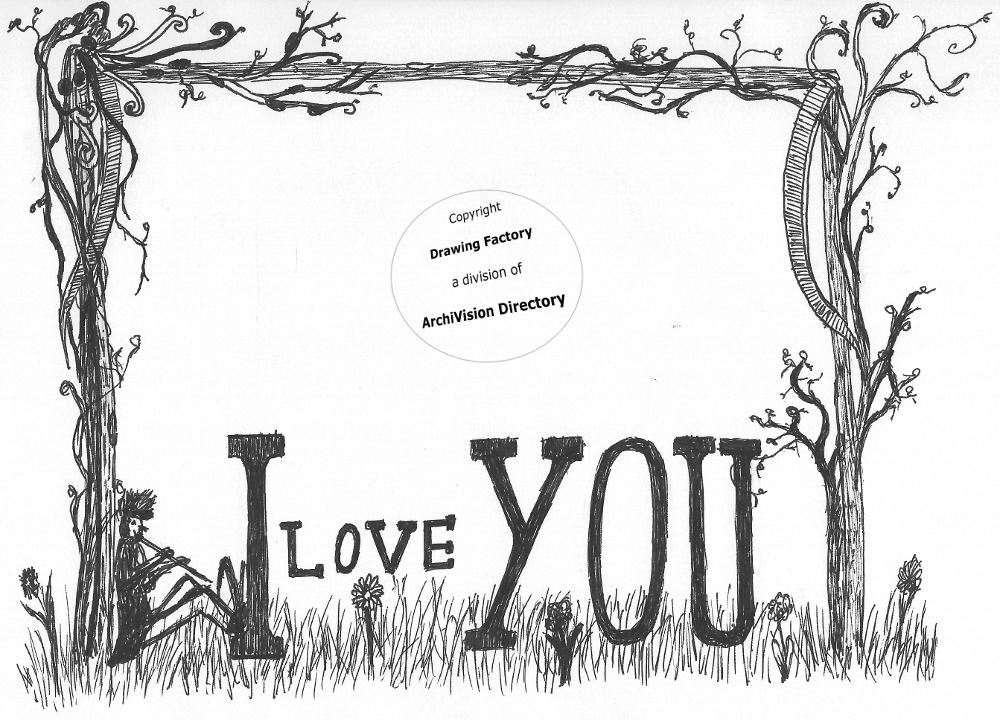 Copyright
Drawing Factory
a division of
ArchiVision Directory
I LOVE YOU